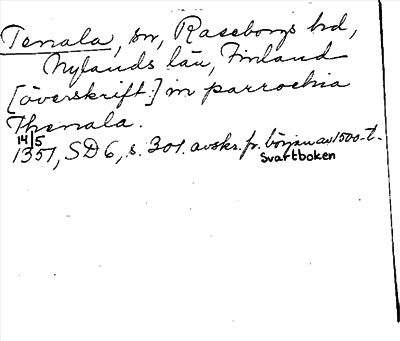 Tenala, sn, Raseborgs hd,
Nylands län, Finland
[överskrift:] in parrochia
Thenala.
14/5
1351, SD 6, s. 301. avskr. fr. början av 1500-t.
Svartboken